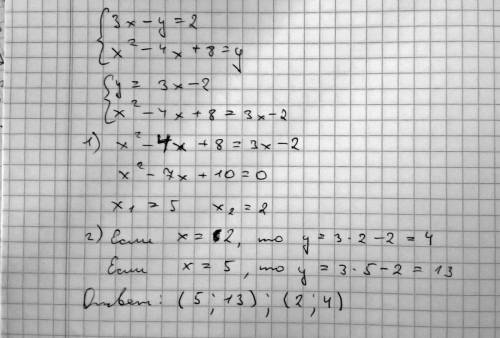 3x - y = 2
x² - 4x + 8 = y
y = 3x - 2
x² - 4x + 8 = 3x - 2
1) x² - 4x + 8 = 3x - 2
x² - 7x + 10 = 0
x₁ = 5 x₂ = 2
2) Если x = 2, то y = 3 · 2 - 2 = 4
Если x = 5, то y = 3 · 5 - 2 = 13
Ответ: (5; 13); (2; 4)